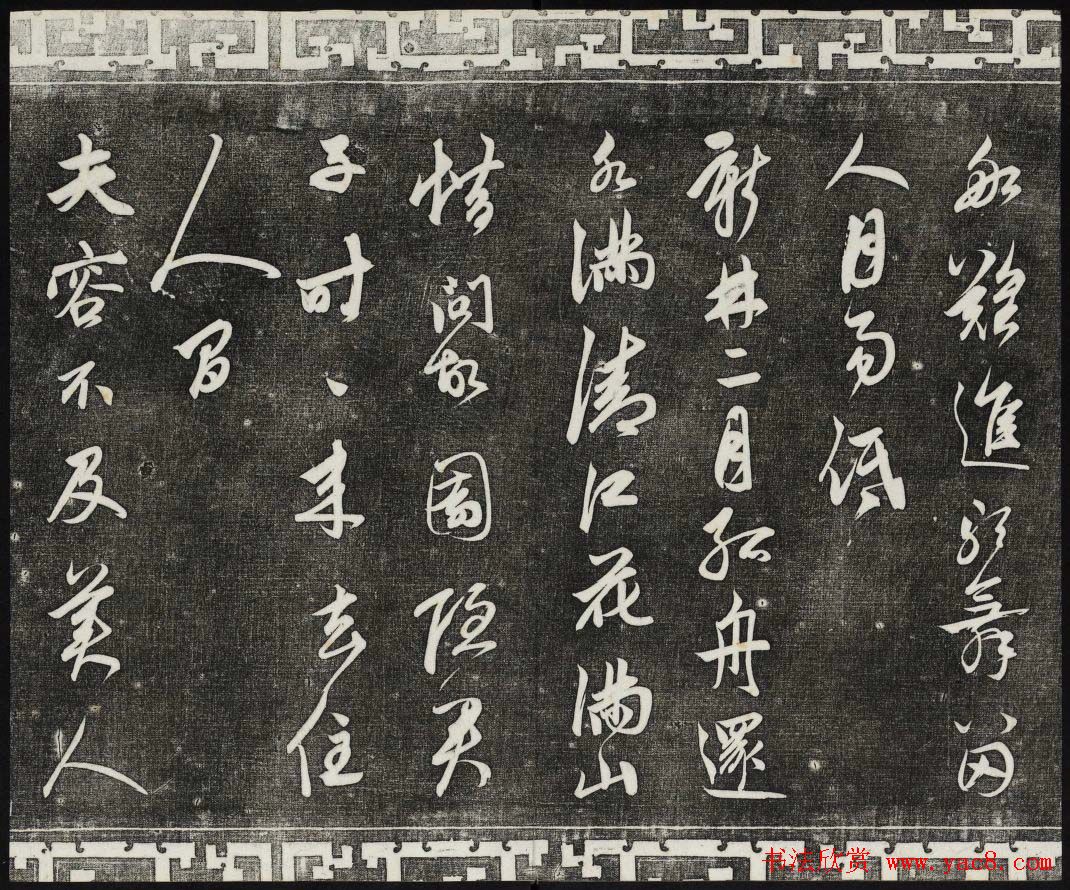 船難進歌舞留
人月易低
新林二月孤舟還
水滿清江花滿山
借問故園隱君
子時、来去住
人間
夫容不及美人
书法欣赏 www.yac8.com